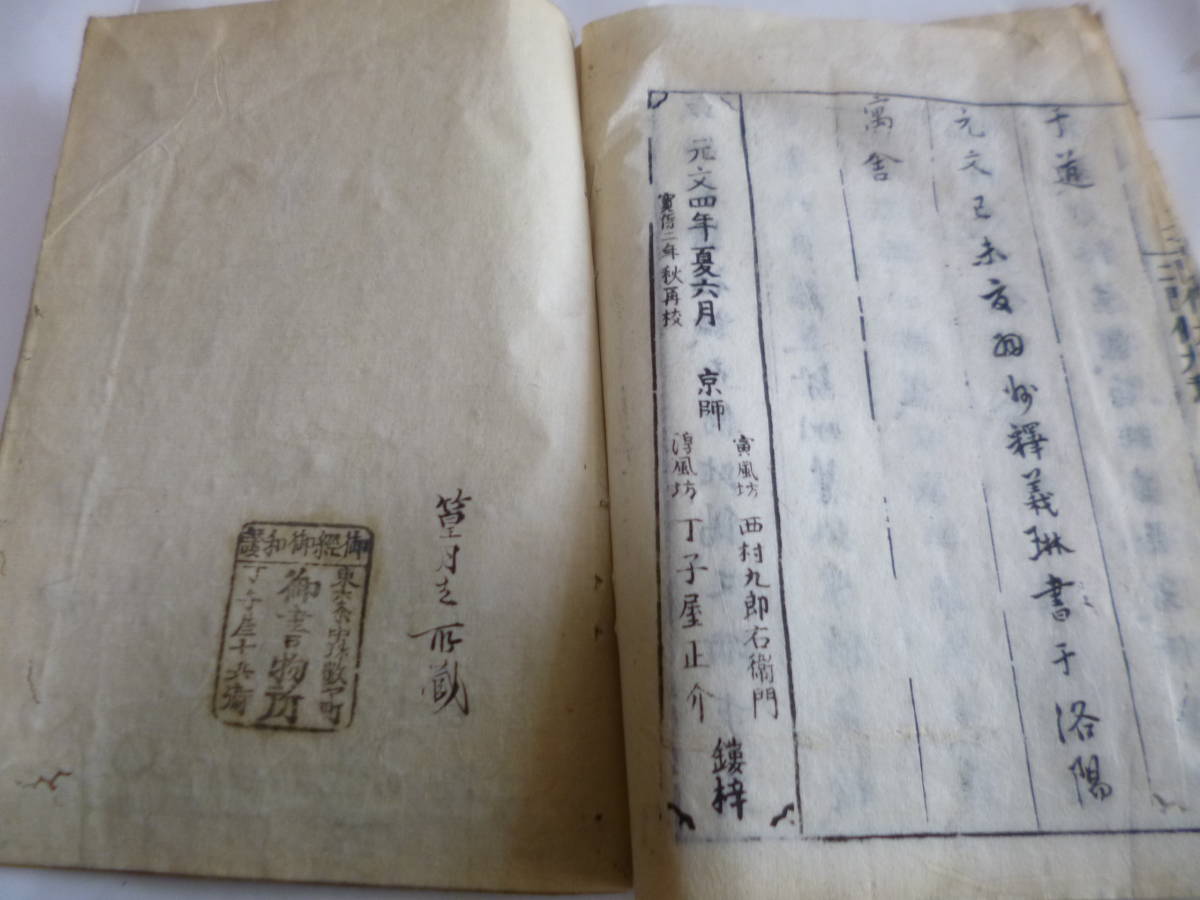 于莚
元文己未夏羽州釋義琳書于洛陽
寓舎
元文四年夏六月 京師
寳暦二年秋再校
寅風坊 西村九郎右衛門
淳風坊 丁子屋止介
鏤梓
望月之所蔵
御經御和讃
東六条中珠数ヤ町
御書物所
丁子屋十兵衛